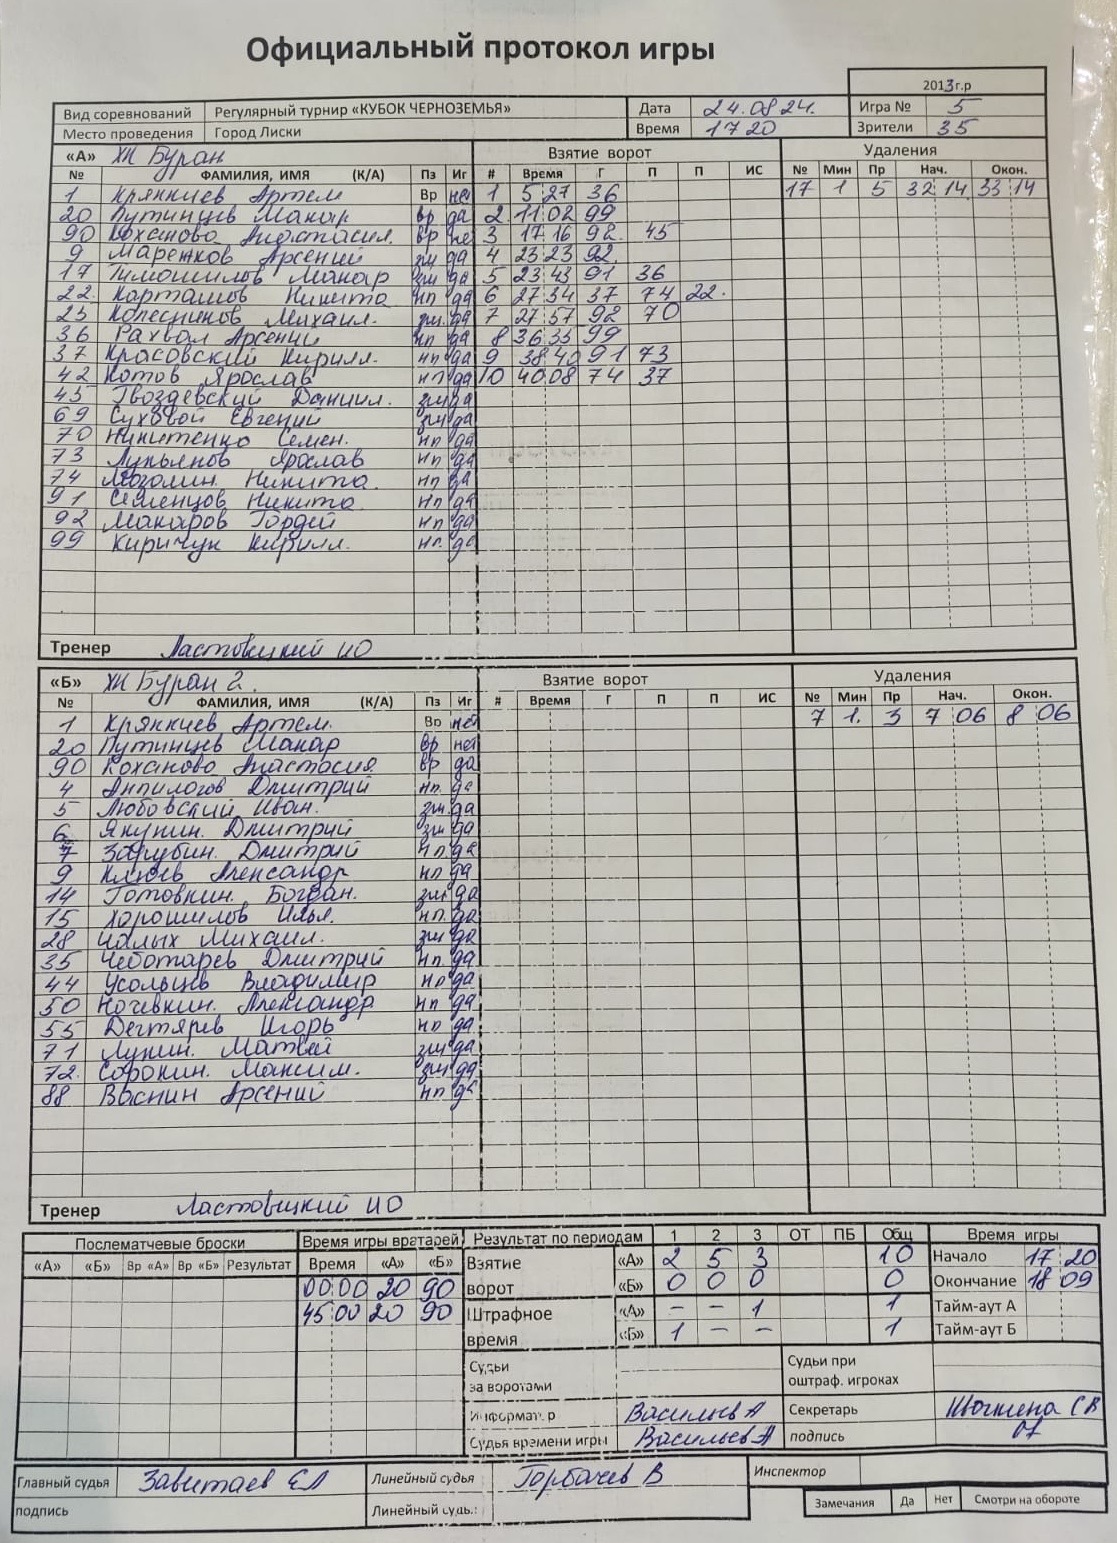 Официальный протокол игры
2013г.р
Вид соревнований Регулярный турнир «КУБОК ЧЕРНОЗЕМЬЯ» Дата 24.08.24. Игра № 5
Место проведения Город Лиски Время 17 20 Зрители 35
«А» ХК Буран Взятие ворот Удаления
№ ФАМИЛИЯ, ИМЯ (К/А) Пз Иг # Время Г П П ИС № Мин Пр Нач. Окон.
1 Артем Вр нет 1 5 27 36 17 1 5 32 14 33 14
20 Путинцев Макар вр да 2 11 02 99
90 Коханова Анастасия. вр не 3 17 16 92 45
9 Маренков Арсений зщ да 4 23 23 92
17 Тимошилов Макар зщ да 5 23 43 91 36
22. Карташов Никита нп да 6 27 34 37 74 22.
25 Колесников Михаил. зщ. да 7 27 57 92 70
36 Рахвал Арсений нп да 8 36 35 99
37 Красовский Кирилл. нп да 9 38 40 91 73
42 Котов Ярослав нп да 10 40 08 74 37
45 Гвоздевский Даниил. зщ да
69 Суховой Евгений зщ да
70 Никитенко Семен. нп да
73 Лукьянов Ярослав нп да
74 Мозолин. Никита. нп да
91 Семенцов Никита. нп да
92 Макаров Гордей нп да
99 Киричук Кирилл. нп. да
Тренер Ластовицкий ИО
«Б» ХК Буран 2. Взятие ворот Удаления
№ ФАМИЛИЯ, ИМЯ (К/А) Пз Иг # Время Г П П ИС № Мин Пр Нач. Окон.
1 Артем. Вр нет 7 1. 3 7 06 8 06
20 Путинцев Макар вр нет
90 Коханова Анастасия вр да
4 Анпилогов Дмитрий нп. да
5 Любовский Иван. зщ да
6 Якунин. Дмитрий зщ да
7 Зарубин. Дмитрий нп. да
9 Клюев Александр нп да
14 Готовкин. Богдан. зщ да
15 Хорошилов Илья. нп. да
28 Чалых Михаил. зщ да
35 Чеботарев Дмитрий нп. да
44 Усольцев Владимир нп да
50 Ночевкин. Александр нп да
55 Дегтярев Игорь нп да
71 Лунин. Матвей зщ да
72. Сорокин. Максим. зщ да
88 Васнин Арсений нп да
Тренер Ластовицкий ИО
Послематчевые броски Время игры вратарей Результат по периодам 1 2 3 ОТ ПБ Общ Время игры
«А» «Б» Вр «А» Вр «Б» Результат Время «А» «Б» Взятие «А» 2 5 3 10 Начало 17 20
00 00 20 90 ворот «Б» 0 0 0 0 Окончание 18 09
45 00 20 90 Штрафное «А» – – 1 1 Тайм-аут А
время «Б» 1 – – 1 Тайм-аут Б
Судьи за воротами Судьи при оштраф. игроках
Информат.р Васильев А Секретарь СВ
Судья времени игры Васильев А подпись
Главный судья Завитаев ЕЛ Линейный судья Горбачев В Инспектор
подпись Линейный судь.: Замечания Да Нет Смотри на обороте